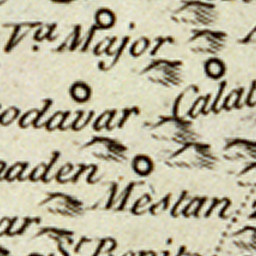 Va Major
odavar
Calat
aden
Mestan
ar
St Benito